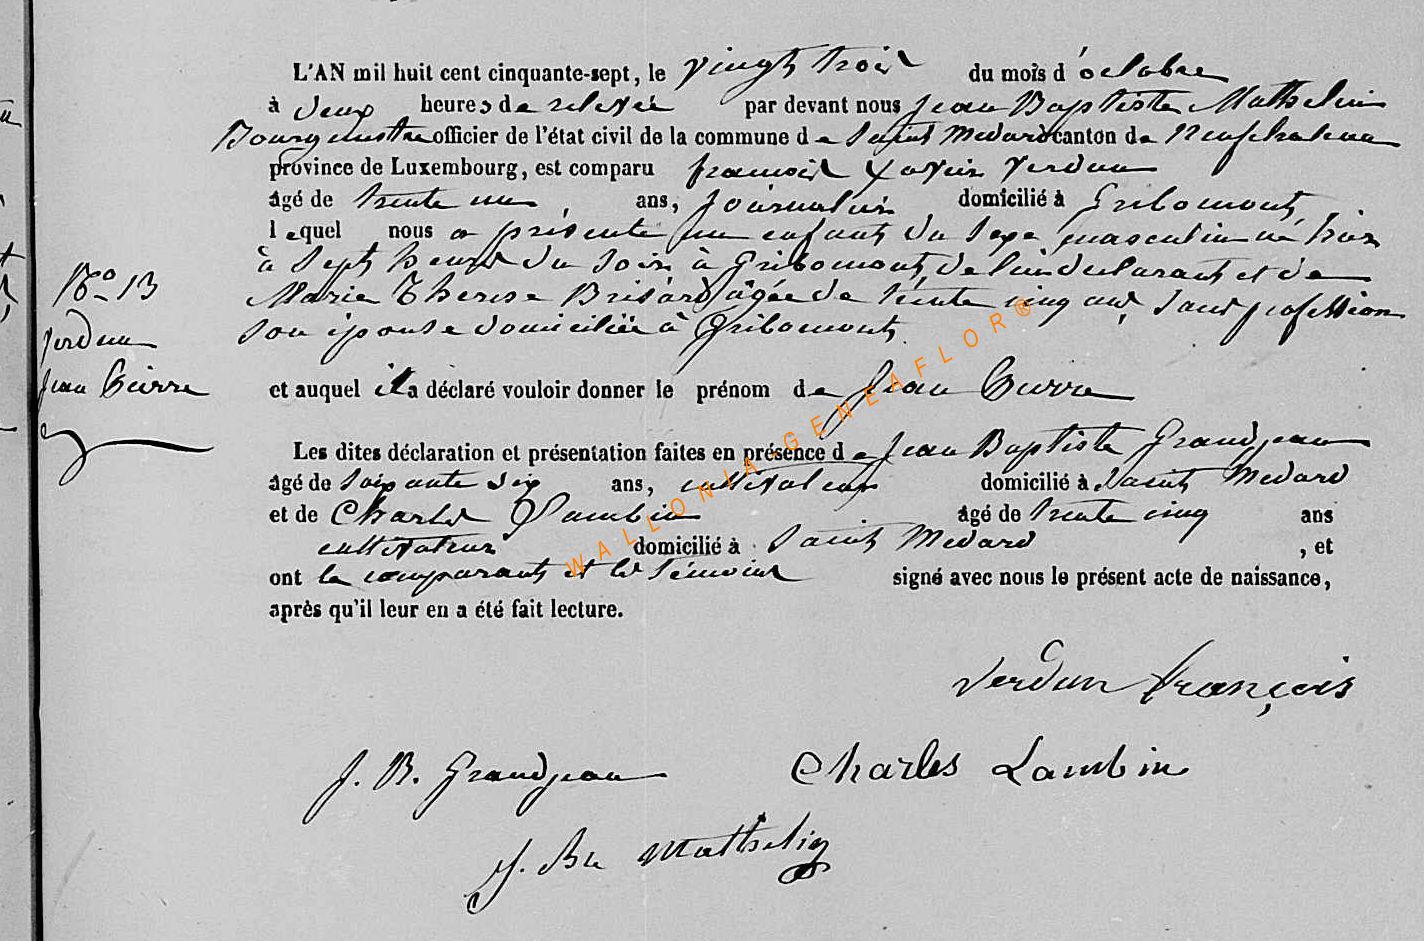 L'AN mil huit cent cinquante-sept, le vingt trois du mois d'octobre
à deux heures de relevée par devant nous Jean Baptiste Mathelin
Bourgmestre officier de l'état civil de la commune de Saint Medard canton de Neufchateau
province de Luxembourg, est comparu francois Xavier Verdun
âgé de trente un ans, journalier domicilié à Gribomont
lequel nous a présenté un enfant du sexe masculin né hier
à Sept heures du Soir à Gribomont, de lui declarant et de
Marie Therese Brisard âgée de trente cinq ans, Sans profession
Son épouse domiciliée à Gribomont
No 13
Verdun
Jean Pierre
et auquel il a déclaré vouloir donner le prénom de Jean Pierre
Les dites déclaration et présentation faites en présence de Jean Baptiste Grandjean
âgé de Soixante six ans, cultivateur domicilié à Saint Medard
et de Charles Lambin âgé de trente cinq ans
cultivateur domicilié à Saint Medard , et
ont le comparant et les témoins signé avec nous le présent acte de naissance,
après qu'il leur en a été fait lecture.
Verdun françois
J. B. Grandjean Charles Lambin
J. Bte Mathelin
WALLONIA-GENEAFLOR®